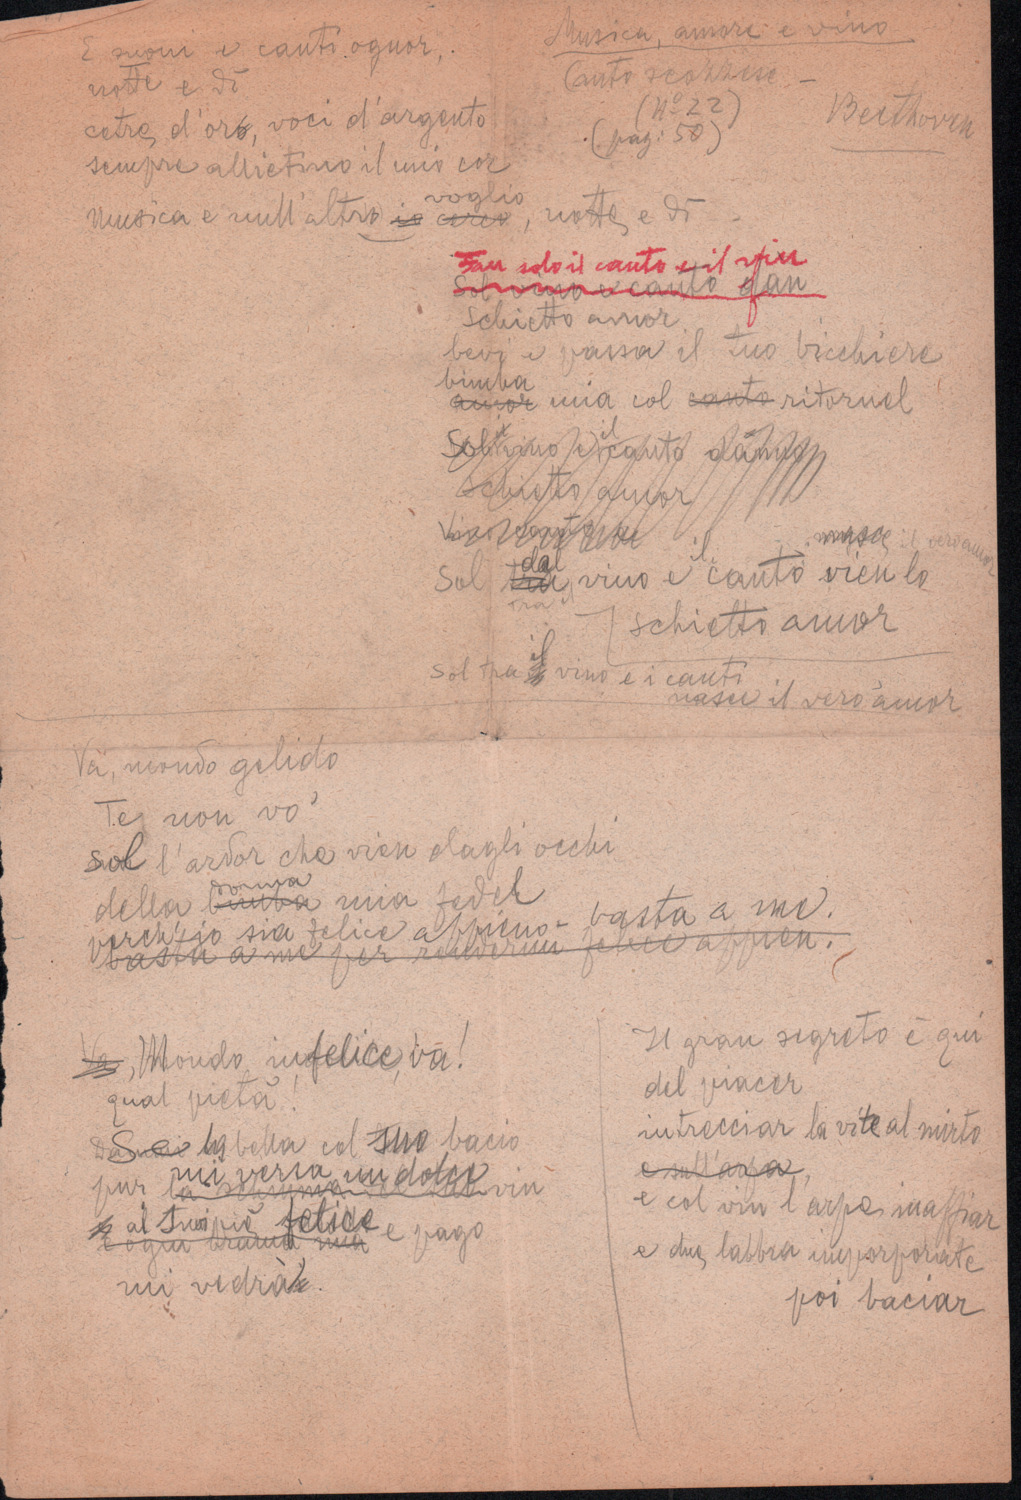 Musica, amore e vino
Canto scozzese –
(N° 22)
(pag: 50)
Beethoven
E suoni e canti ognor,
notte e dì
cetre d'oro, voci d'argento
sempre allietino il mio cor
voglio
Musica e null'altro io cerco, notte e dì –
Fan solo il canto e il vin
Sol vino e canto dan
schietto amor
bevi e passa il tuo bicchiere
bimba
amor mia col canto ritornel
il il
Sol vino e canto danno
schietto amor
nasce il vero amor
dal il
Sol tra vino e canto vien lo
tra il
schietto amor
Sol tra il vino e i canti
nasce il vero amor
Va, mondo gelido
Te non vo'
sol l'ardor che vien dagli occhi
donna
della bimba mia fedel
perch'io sia felice appieno – basta a me.
basta a me per rendermi felice appien.
Va, Mondo infelice, va!
qual pietà!
la bella col suo bacio
mi versa un dolce
pur vin
al tuo più felice
e ogni brama mia e pago
mi vedrà.
Il gran segreto è qui
del piacer
intrecciar la vite al mirto
e sull'arpa,
e col vin l'arpe inaffiar
e due labbra imporporate
poi baciar